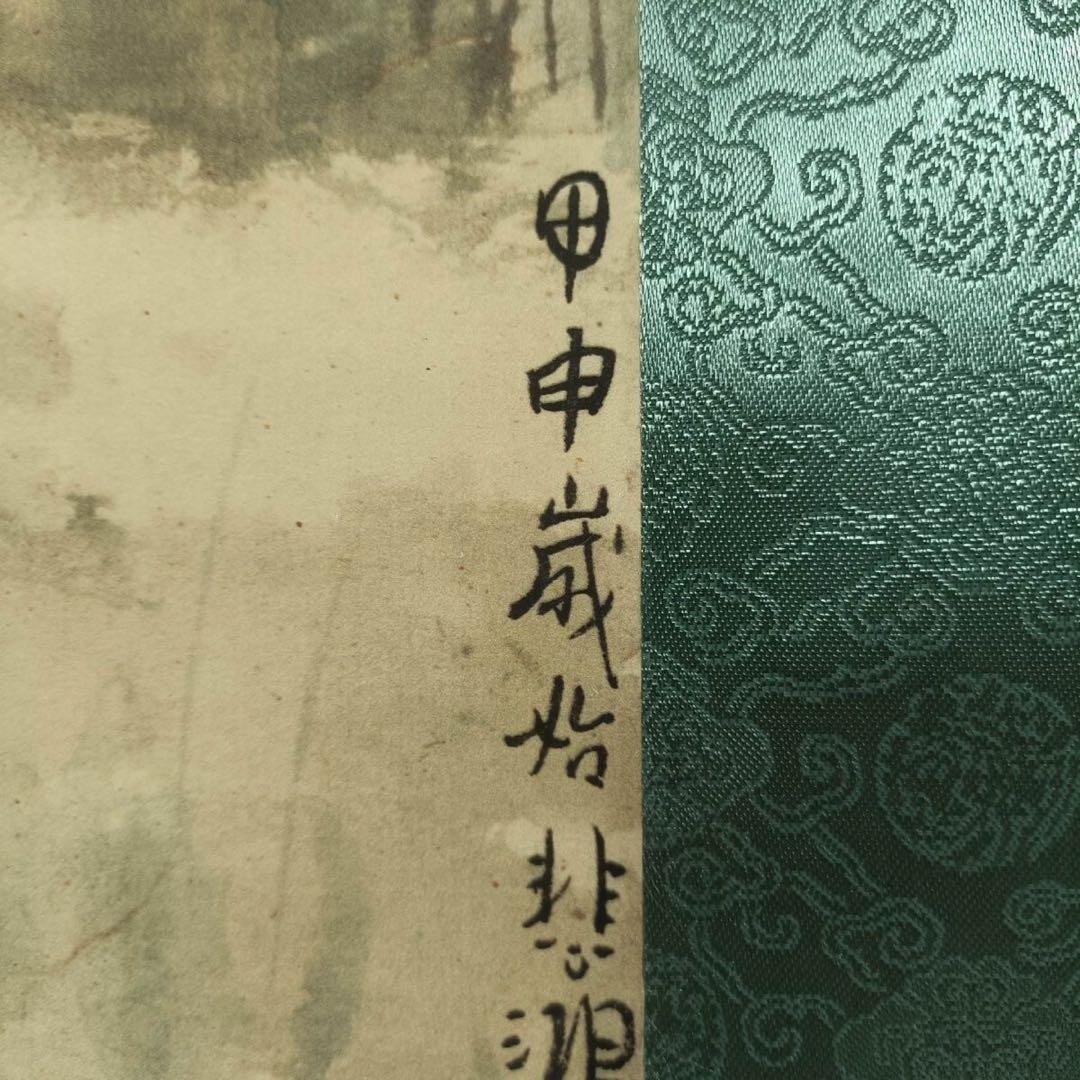 甲申歲始悲鴻